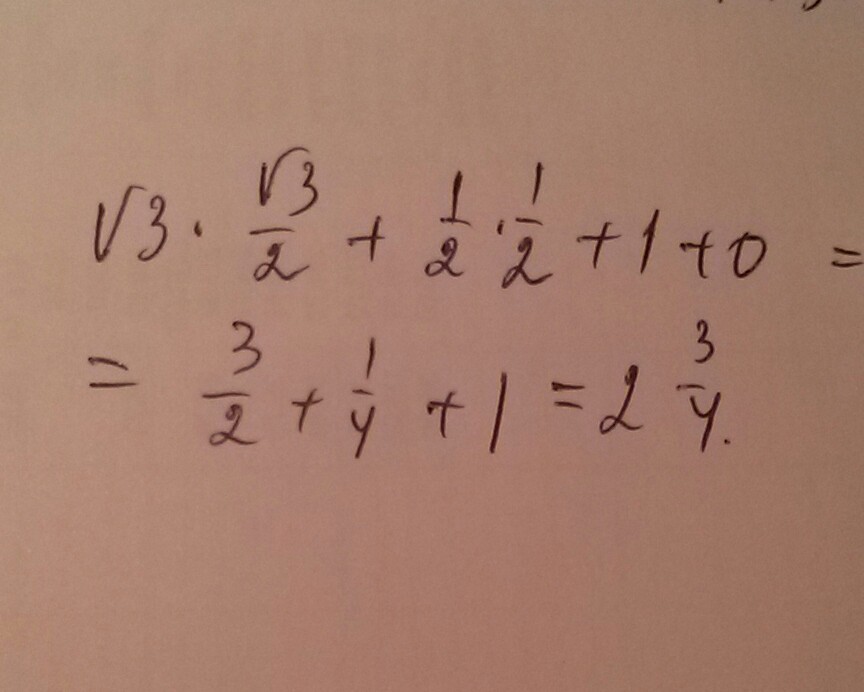 √3 · √3/2 + 1/2 · 1/2 + 1 + 0 =
= 3/2 + 1/4 + 1 = 2 3/4.